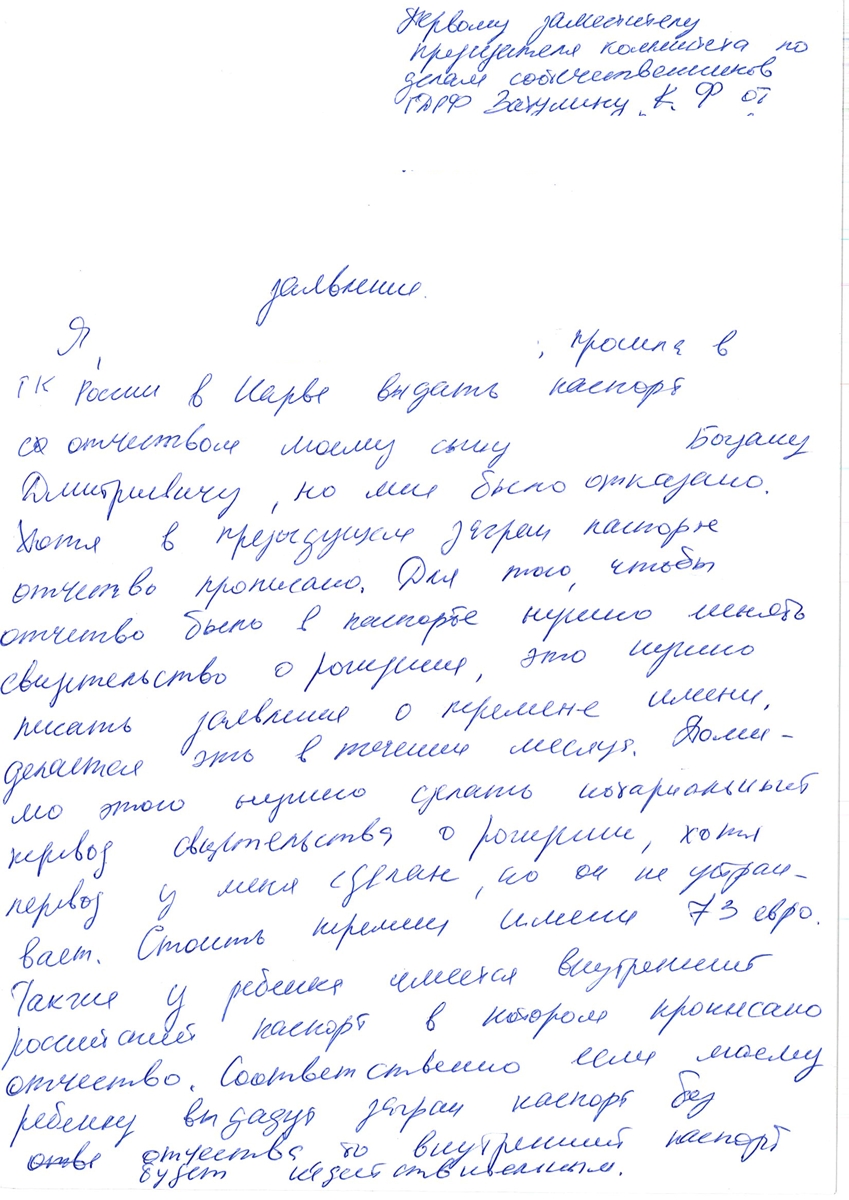 Первому заместителю
председателя комитета по
делам соотечественников
ГДРФ Затулину К. Ф от
заявление.
Я, , просила в
ГК России в Нарве выдать паспорт
со отчеством моему сыну Богдану
Дмитриевичу, но мне было отказано.
Хотя в предыдущем загран паспорте
отчество прописано. Для того, чтобы
отчество было в паспорте нужно менять
свидетельство о рождении, это нужно
писать заявление о перемене имени,
делается это в течении месяца. Поми-
мо этого нужно сделать нотариальный
перевод свидетельства о рождении, хотя
перевод у меня сделан, но он не устраи-
вает. Стоить перемена имени 73 евро.
Также у ребенка имеется внутренний
российский паспорт в котором прописано
отчество. Соответственно если моему
ребенку выдадут загран паспорт без
отчества то внутренний паспорт
будет недействительным.